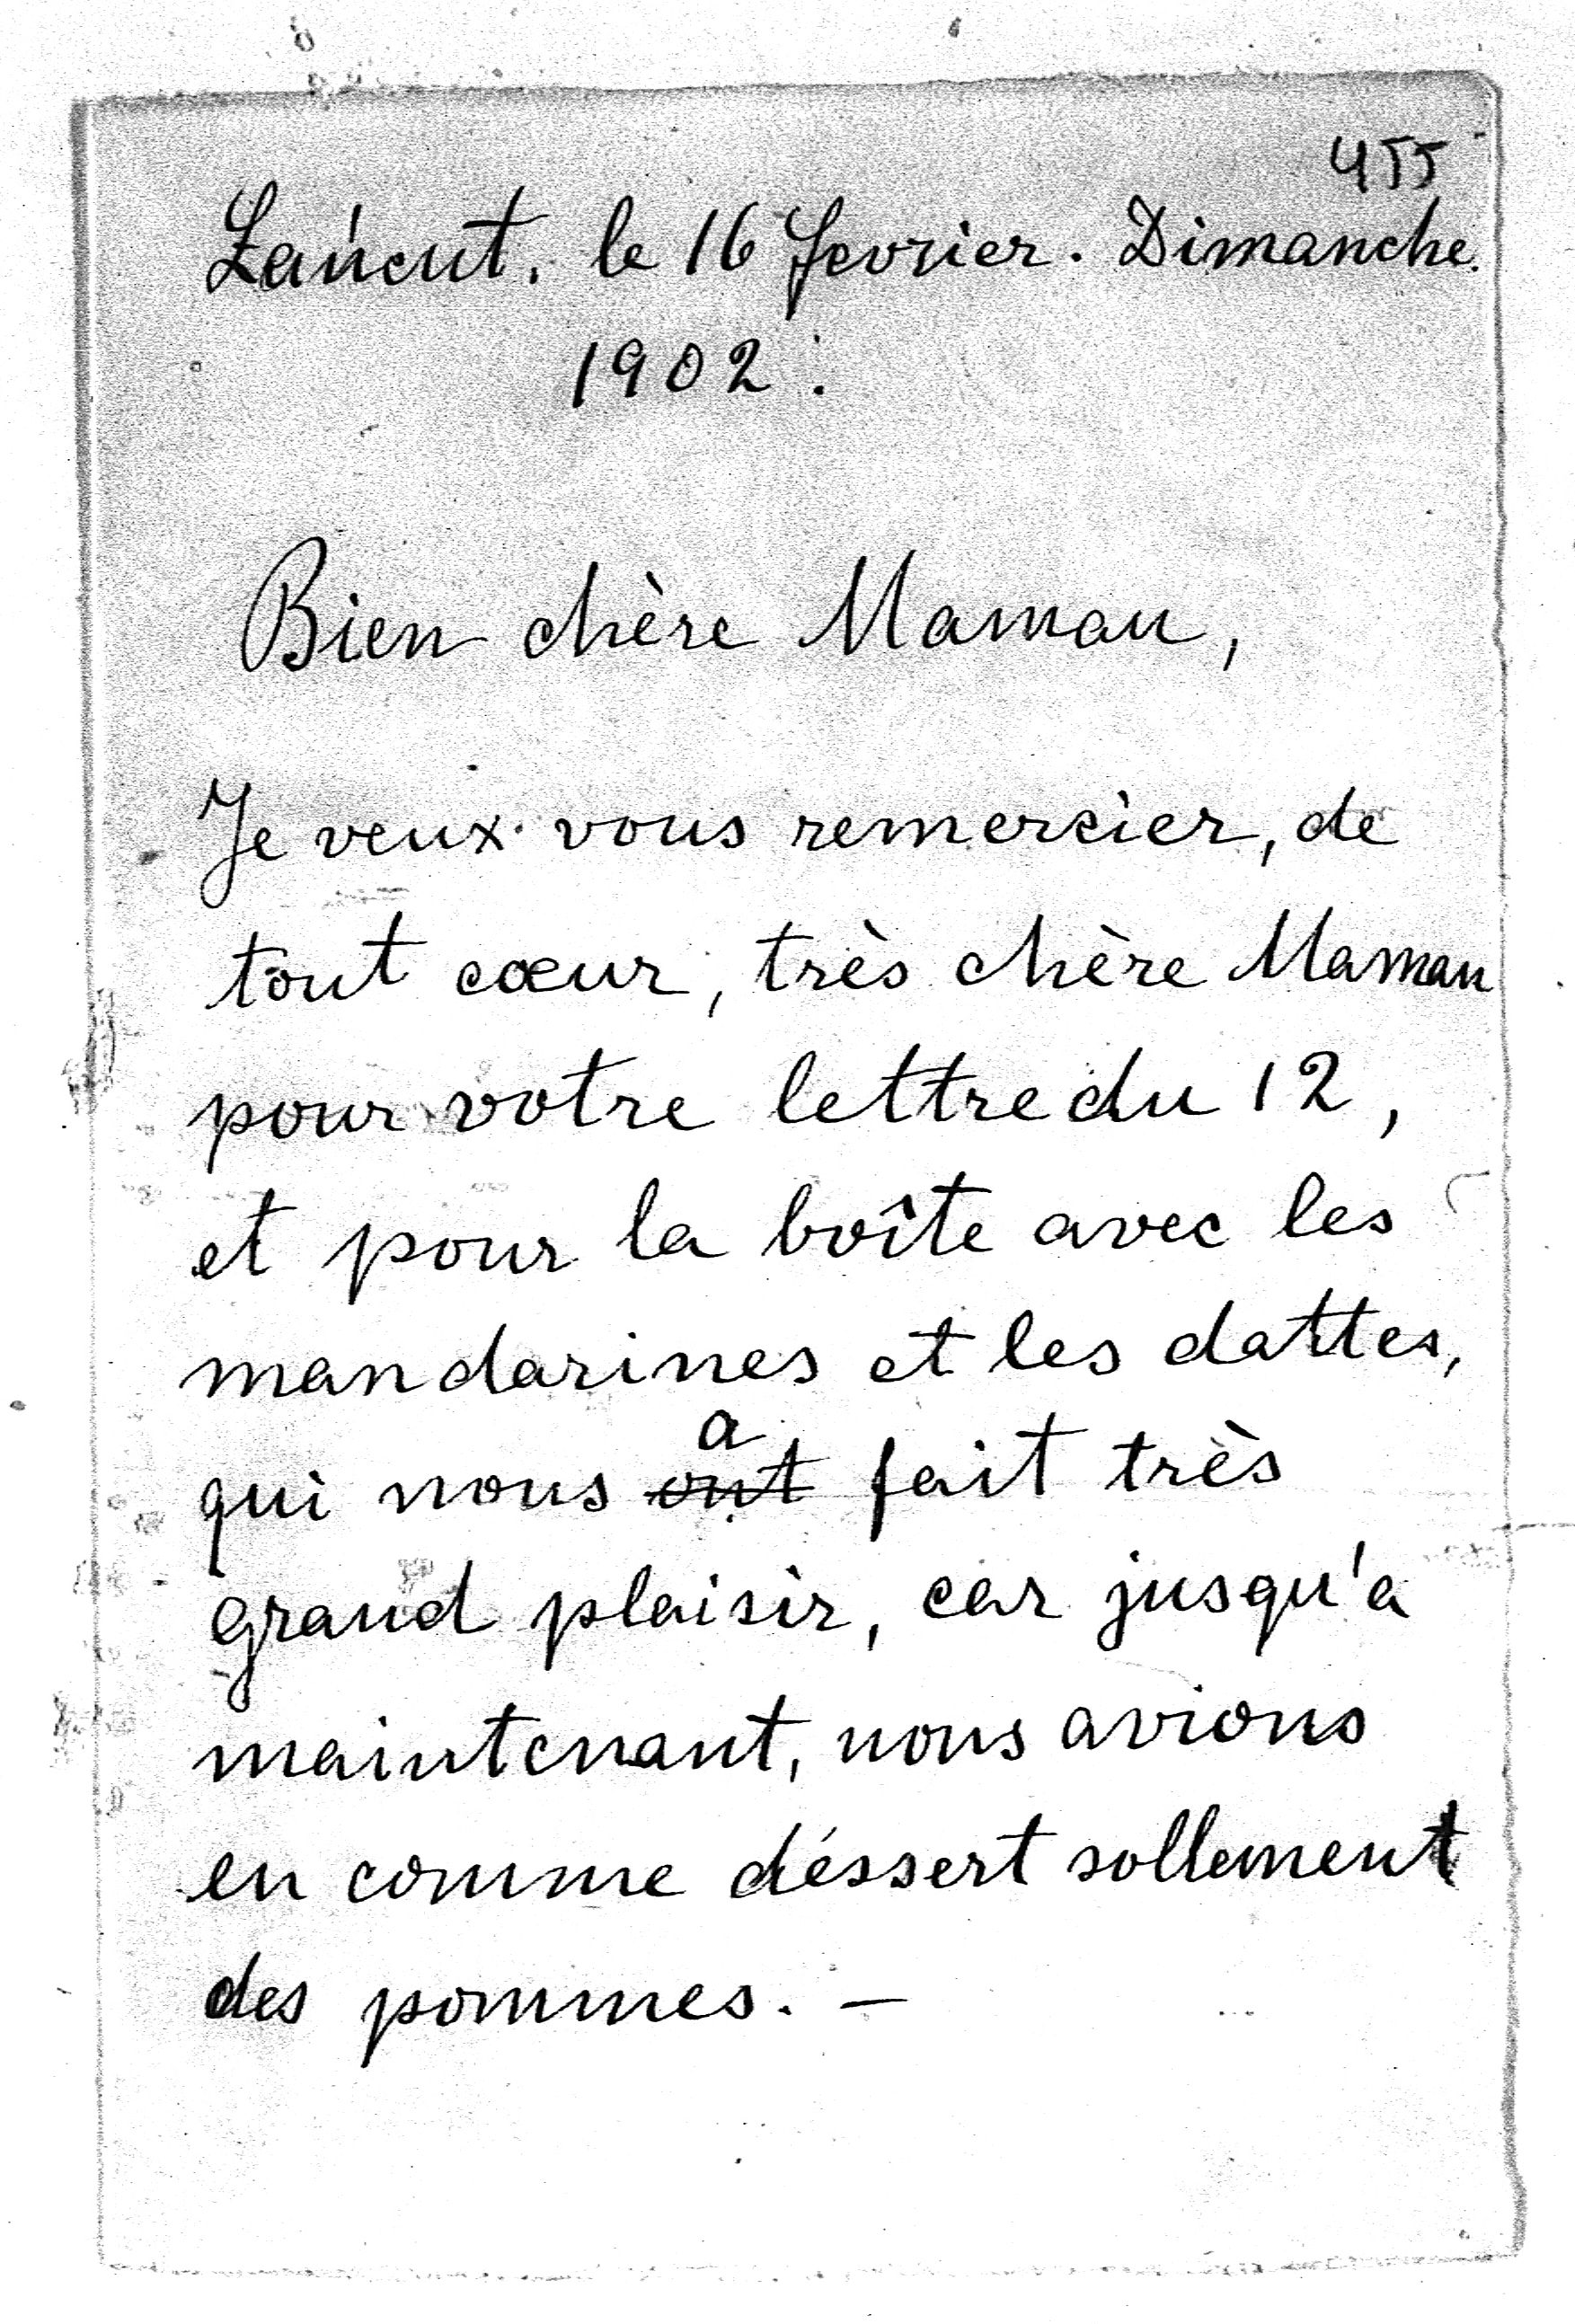 455
Łańcut, le 16 fevrier. Dimanche.
1902.
Bien chère Maman,
Je veux vous remercier, de
tout cœur, très chère Maman
pour votre lettre du 12,
et pour la boîte avec les
mandarines et les dattes,
a
qui nous ont fait très
grand plaisir, car jusqu'a
maintenant, nous avions
en comme déssert sollement
des pommes. —